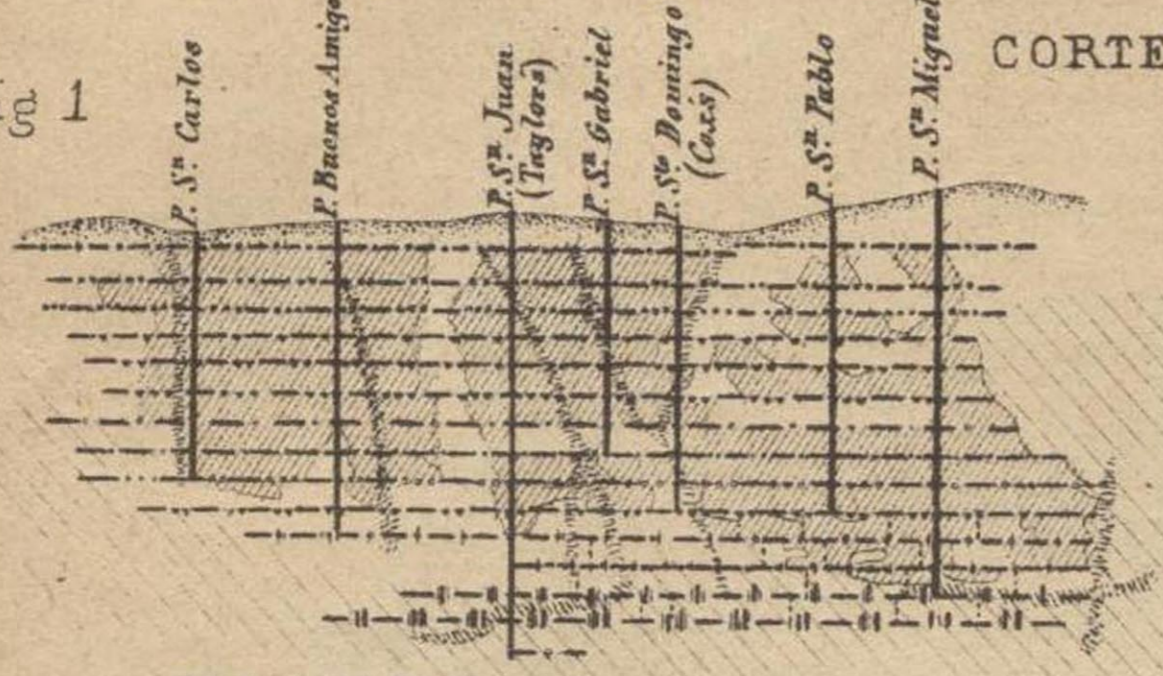 CORTE
ig 1
P. Sⁿ Carlos
P. Buenos Amigo
P. Sⁿ Juan
(Taylors)
P. Sⁿ Gabriel
P. Sᵗᵒ Domingo
(Cox's)
P. Sⁿ Pablo
P. Sⁿ Miguel